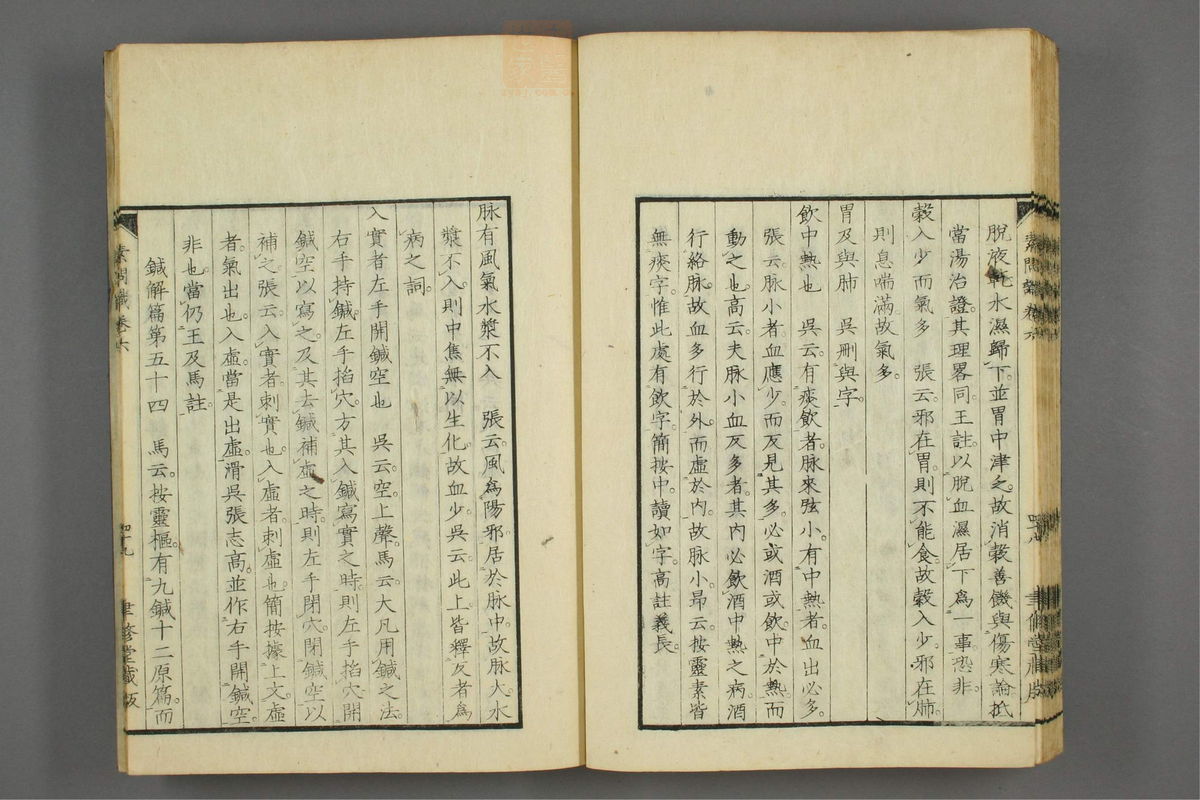 脫液乾水濕歸下並胃中津之故消穀善饑與傷寒論抵
當湯治證其理畧同王註以脫血濕居下爲一事恐非
穀入少而氣多　張云邪在胃則不能食故穀入少邪在肺
則息喘滿故氣多
胃及與肺　吳刪與字
飲中熱也　吳云有痰飲者脈來弦小有中熱者血出必多
張云脈小者血應少而反見其多必或酒或飲中於熱而
動之也高云夫脈小血反多者其內必飲酒中熱之病酒
行絡脈故血多行於外而虛於內故脈小昂云按靈素皆
無痰字惟此處有飲字簡按中讀如字高註義長
素問識卷六
聿修堂藏版
脉有風氣水漿不入　張云風爲陽邪居於脉中故脈大水
漿不入則中焦無以生化故血少吳云此上皆釋反者爲
病之詞
入實者左手開鍼空也　吳云空上聲馬云大凡用鍼之法
右手持鍼左手掐穴方其入鍼寫實之時則左手掐穴開
鍼空以寫之及其去鍼補虛之時則左手閉穴閉鍼空以
補之張云入實者刺實也入虛者刺虛也簡按據上文虛
者氣出也入虛當是出虛滑吳張志高並作右手開鍼空
非也當仍王及馬註
鍼解篇第五十四　馬云按靈樞有九鍼十二原篇而
素問識卷六
四十九
聿修堂藏版